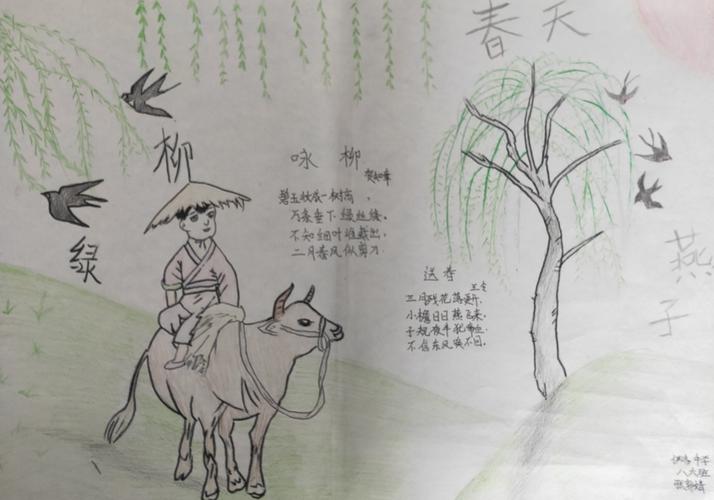 春天
柳
绿
咏柳
贺知章
碧玉妆成一树高,
万条垂下绿丝绦。
不知细叶谁裁出,
二月春风似剪刀.
送春
王令
三月残花落更开,
小檐日日燕飞来.
子规夜半犹啼血.
不信东风唤不回.
燕
子
中学
八六班